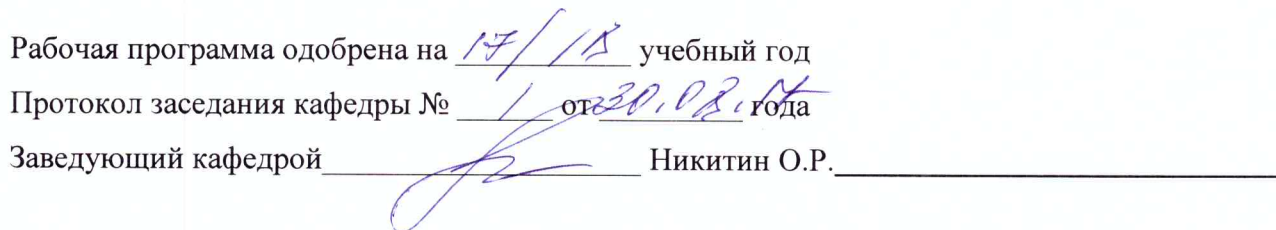 Рабочая программа одобрена на 17/18 учебный год
Протокол заседания кафедры № 1 от 30.08.17 года
Заведующий кафедрой Никитин О.Р.